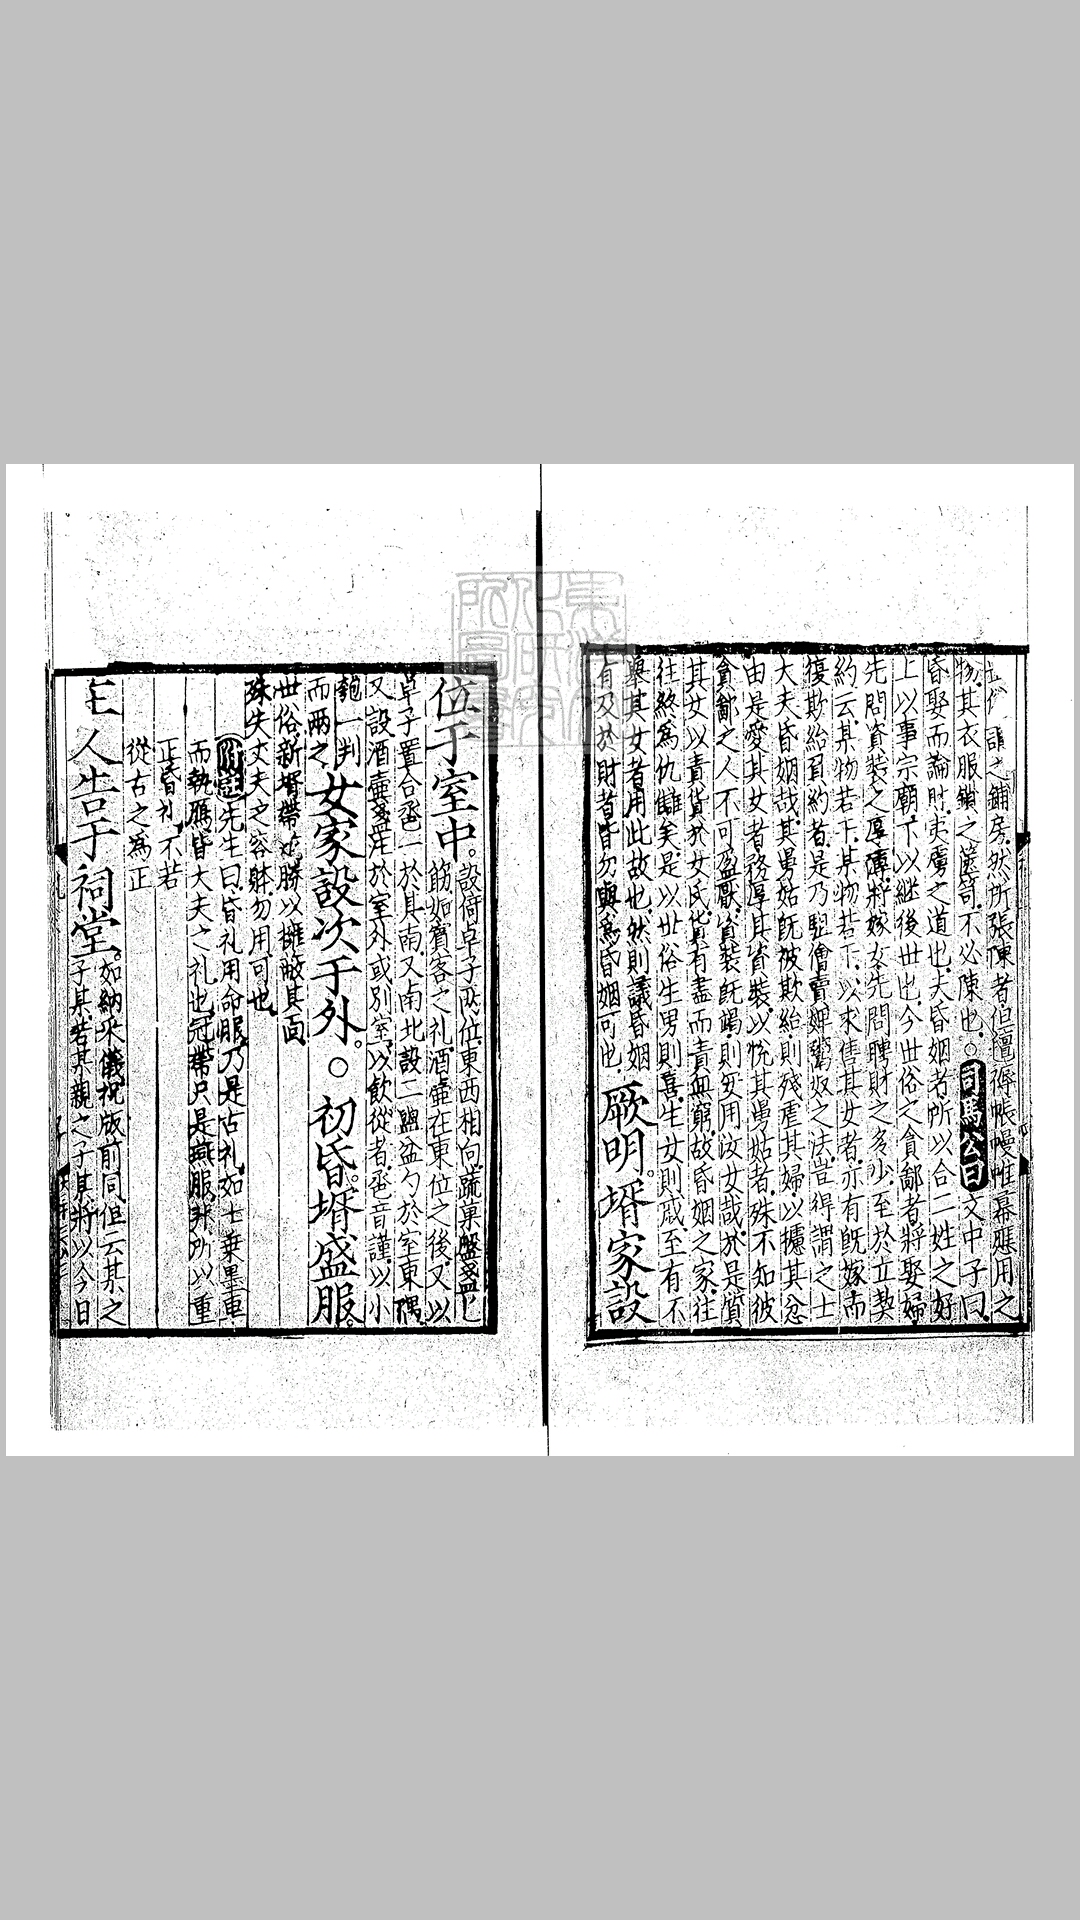 謂之鋪房然所張陳者但氊褥帳幔帷幕應用之
物其衣服鎖之篋笥不必陳也○司馬公曰文中子曰
昏娶而論財夷虜之道也夫昏姻者所以合二姓之好
上以事宗廟下以継後世也今世俗之貪鄙者將娶婦
先問資裝之厚薄將嫁女先問聘財之多少至於立契
約云某物若干某物若干以求售其女者亦有既嫁而
復欺紿負約者是乃駔儈賣婢鬻奴之法豈得謂之士
大夫昏姻哉其舅姑既被欺紿則殘虐其婦以攄其忿
由是愛其女者務厚其資裝以恱其舅姑者殊不知彼
貪鄙之人不可盈厭資裝既竭則安用汝女哉於是質
其女以責貨於女氏貨有盡而責無窮故昏姻之家往
往終為仇讎矣是以世俗生男則喜生女則戚至有不
舉其女者用此故也然則議昏姻
有及於財者皆勿與為昏姻可也 厥明。壻家設
位于室中。設倚卓子兩位東西相向蔬菓盤盞匕
筯如賓客之礼酒壺在東位之後又以
卓子置合巹一於其南又南北設二盥盆勺於室東隅
又設酒壺盞注於室外或別室以飲從者巹音謹以小
匏一判
而兩之 女家設次于外。○初昏。壻盛服。
世俗新壻帶花勝以擁蔽其面
殊失丈夫之容躰勿用可也
附註先生曰昏礼用命服乃是古礼如士乗墨車
而執鴈皆大夫之礼也冠帶只是燕服非所以重
正昏礼不若
從古之為正
主人告于祠堂。如納采儀祝版前同但云某之
子某若某親之子某將以今日